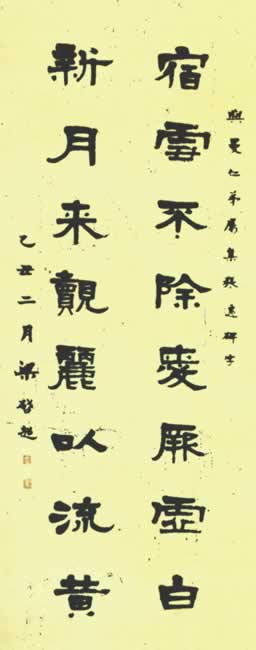 興曼仁弟屬集張遷碑字
宿雲不除爰厥虛白
新月来覿麗以流黃
乙丑二月梁啟超